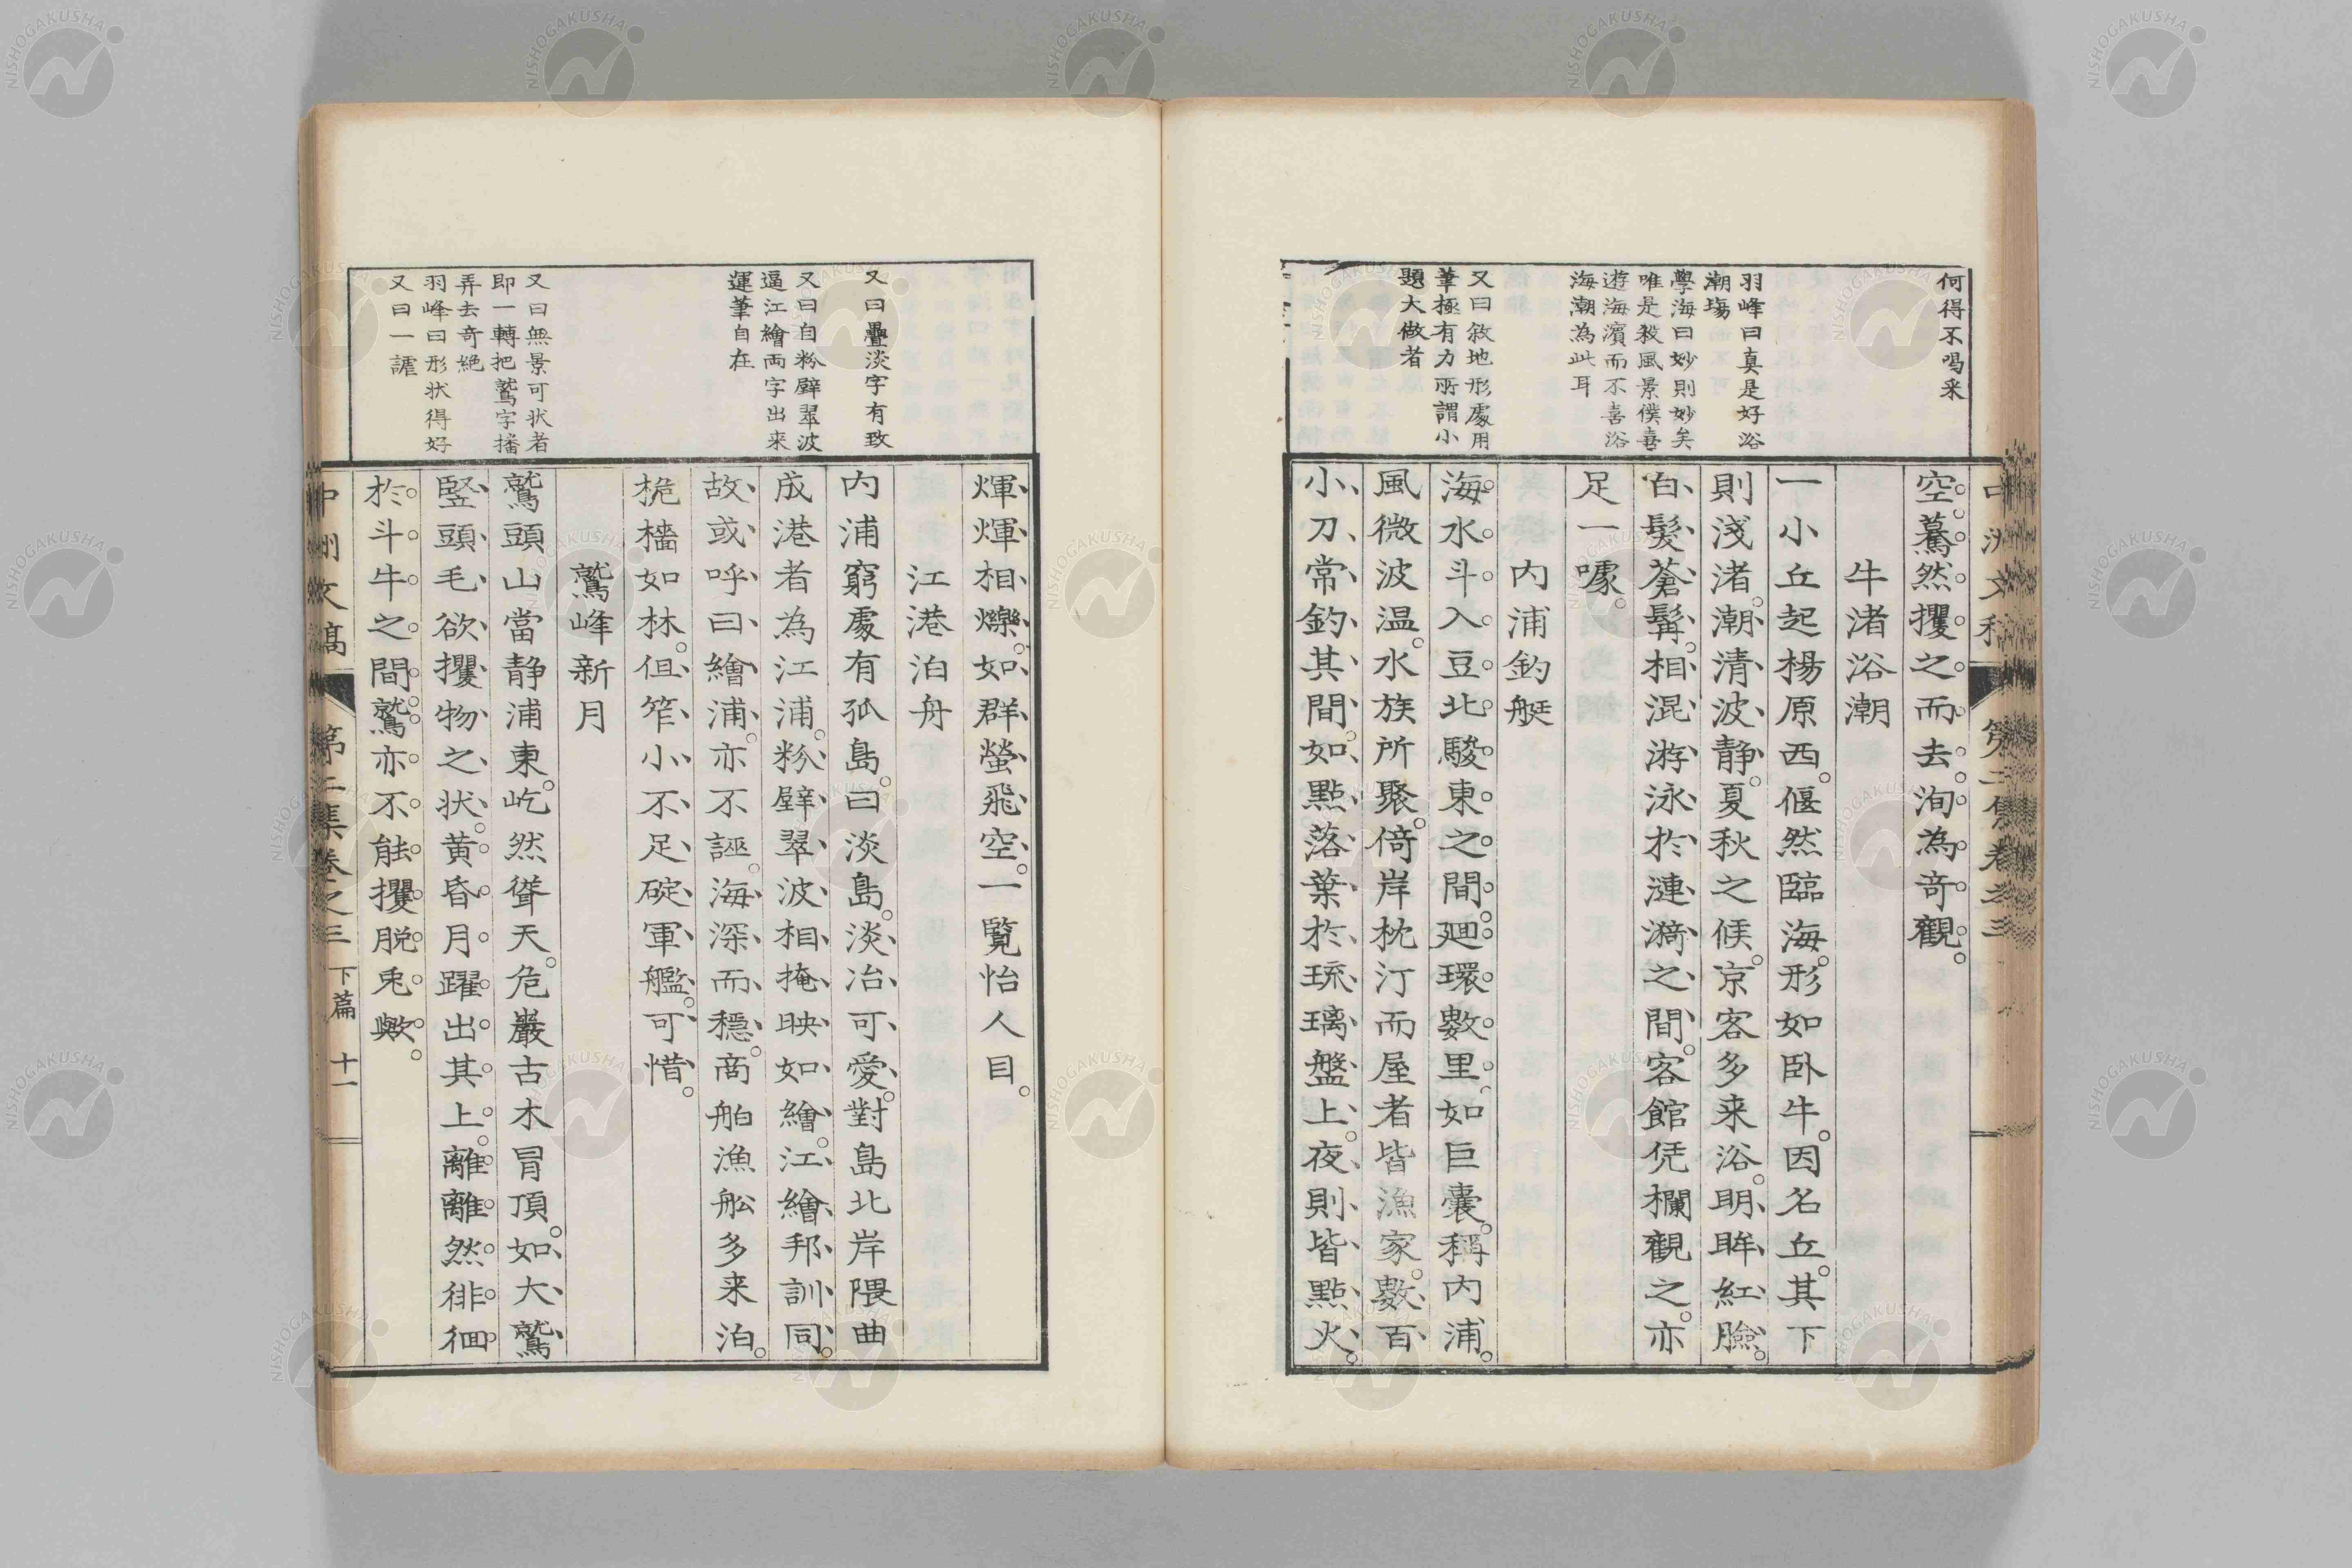 何得不喝采
羽峰曰真是好浴
潮場
學海曰妙則妙矣
唯是殺風景僕喜
遊海濱而不喜浴
海潮為此耳
又曰敘地形處用
筆極有力所謂小
題大做者
空。驀然攫之而去。洵為奇觀。
牛渚浴潮
一小丘起楊原西。偃然臨海。形如臥牛。因名丘。其下
則淺渚。潮清波静。夏秋之候。京客多来浴。明眸紅臉。
白髮蒼髯。相混游泳於漣漪之間。客館凭欄觀之。亦
足一噱。
内浦釣艇
海水斗入豆北駿東之間。廻環數里。如巨囊。稱内浦。
風微波温。水族所聚。倚岸枕汀而屋者皆漁家。數百
小刀常釣其間。如點落葉於琉璃盤上。夜則皆點火。
又曰疊淡字有致
又曰自粉壁翠波
逼江繪両字出来
運筆自在
又曰無景可状者
即一轉把鷲字播
弄去奇絶
羽峰曰形状得好
又曰一謔
煇煇相爍。如群螢飛空。一覧怡人目。
江港泊舟
内浦窮處有孤島。曰淡島。淡冶可愛。對島北岸隈曲
成港者為江浦。粉壁翠波相掩映如繪。江繪邦訓同。
故或呼曰繪浦。亦不誣。海深而穩。商舶漁舩多来泊。
桅檣如林。但窄小不足碇軍艦。可惜。
鷲峰新月
鷲頭山當静浦東。屹然聳天。危巖古木冒頂。如大鷲
竪頭毛欲攫物之状。黄昏月躍出其上。離離然徘徊
於斗牛之間。鷲亦不能攫脱兎歟。
中洲文稿
第二集卷之三
下篇
十一